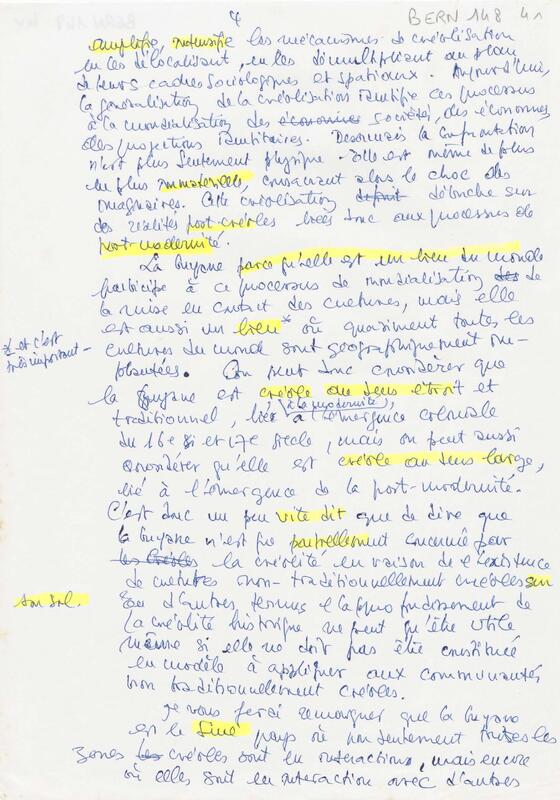 4
BERN 148 41
amplifie, intensifie les mécanismes de créolisation
en les délocalisant, en les démultipliant au plan
de leurs cadres sociologiques et spatiaux. Aujourd'hui,
la généralisation de la créolisation identifie ces processus
à la mondialisation des économies sociétés, des économies
des projections identitaires. Désormais la confrontation
n'est plus seulement physique. Elle est même de plus
en plus immatérielle, consacrant alors le choc des
imaginaires. Cette créolisation débouche sur
des réalités post-créoles liées donc aux processus de
post-modernité.
La Guyane parce qu'elle est un lieu du monde
participe à ce processus de mondialisation des de
la mise en contact des cultures, mais elle
est aussi un lieu* où quasiment toutes les
* et c'est
très important-
cultures du monde sont géographiquement im-
plantées. On peut donc considérer que
la Guyane est créole au sens étroit et
traditionnel, lié à l'émergence coloniale
à la modernité,
du 16e et 17e siècle, mais on peut aussi
considérer qu'elle est créole au sens large,
lié à l'émergence de la post-modernité.
C'est donc un peu vite dit que de dire que
la Guyane n'est que partiellement concernée par
les Créoles la créolité en raison de l'existence
de cultures non-traditionnellement créoles sur
son sol. En d'autres termes l'approfondissement de
la créolité historique ne peut qu'être utile
même si elle ne doit pas être constitué
en modèle à appliquer aux communautés
non traditionnellement créoles.
Je vous ferai remarquer que la Guyane
est le seul pays où non seulement toutes les
zones les créoles sont en interactions, mais encore
où elles sont en interaction avec d'autres